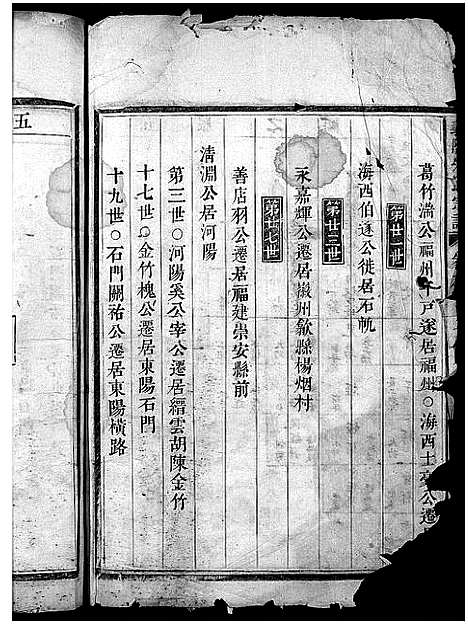 葛竹滿公福州千戶遂居福州○海西士亳公遷
第廿二世
海西伯逢公徙居石軌
第廿三世
永嘉輝公遷居徽州歙縣楊烟村
第廿七世
善店羽公遷居福建崇安縣前
清淵公居河陽
第三世○河陽奚公宰公遷居縉雲胡陳金竹
十七世○金竹槐公遷居東陽石門
十九世○石門關祐公遷居東陽橫路
五